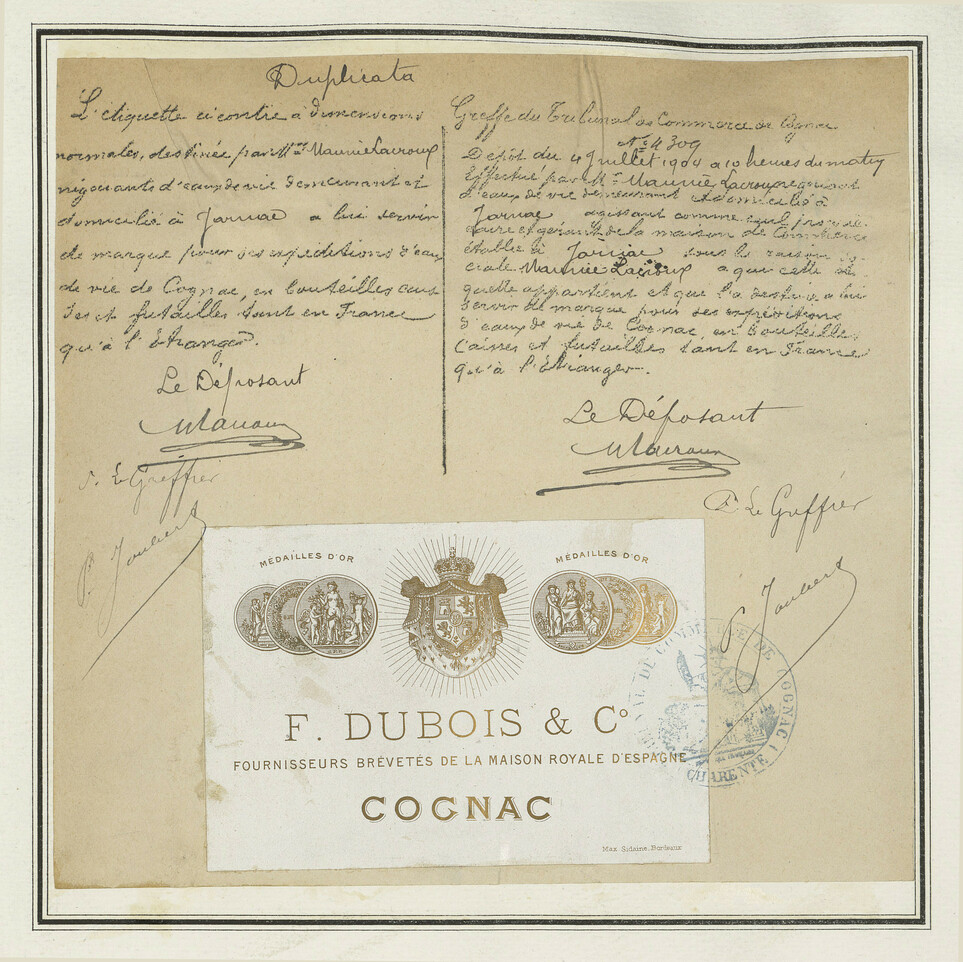 Duplicata
L'étiquette ci contre à dimensions
normales, destinée par Mr Maurice Lacroux
négociants d'eaux de vie demeurant et
domicilié à Jarnac a lui servir
de marque pour ses expéditions d'eaux
de vie de Cognac, en bouteilles caisses
et futailles tant en France
qu'à l'étranger.
Le Déposant
MLacroux
P. Le Greffier
P. Joubert
Greffe du Tribunal de Commerce de Cognac
No 4309
Dépôt du 4 juillet 1904 a 10 heures du matin
Effectué par Mr Maurice Lacroux négociant
d'eaux de vie demeurant et domicilié à
Jarnac agissant comme seul propriétaire
et gérant de la maison de Commerce
établie à Jarnac sous la raison sociale
Maurice Lacroux a qui cette étiquette
appartient et que l'a destine a lui
servir de marque pour ses expéditions
d'eaux de vie de Cognac, en bouteilles,
caisses et futailles tant en France
qu'à l'Etranger.
Le Déposant
MLacroux
P. Le Greffier
P. Joubert
MÉDAILLES D'OR
MÉDAILLES D'OR
F. DUBOIS & Co
FOURNISSEURS BRÉVETÉS DE LA MAISON ROYALE D'ESPAGNE
COGNAC
Max Sidaine. Bordeaux
TRIBUNAL DE COMMERCE DE COGNAC
CHARENTE